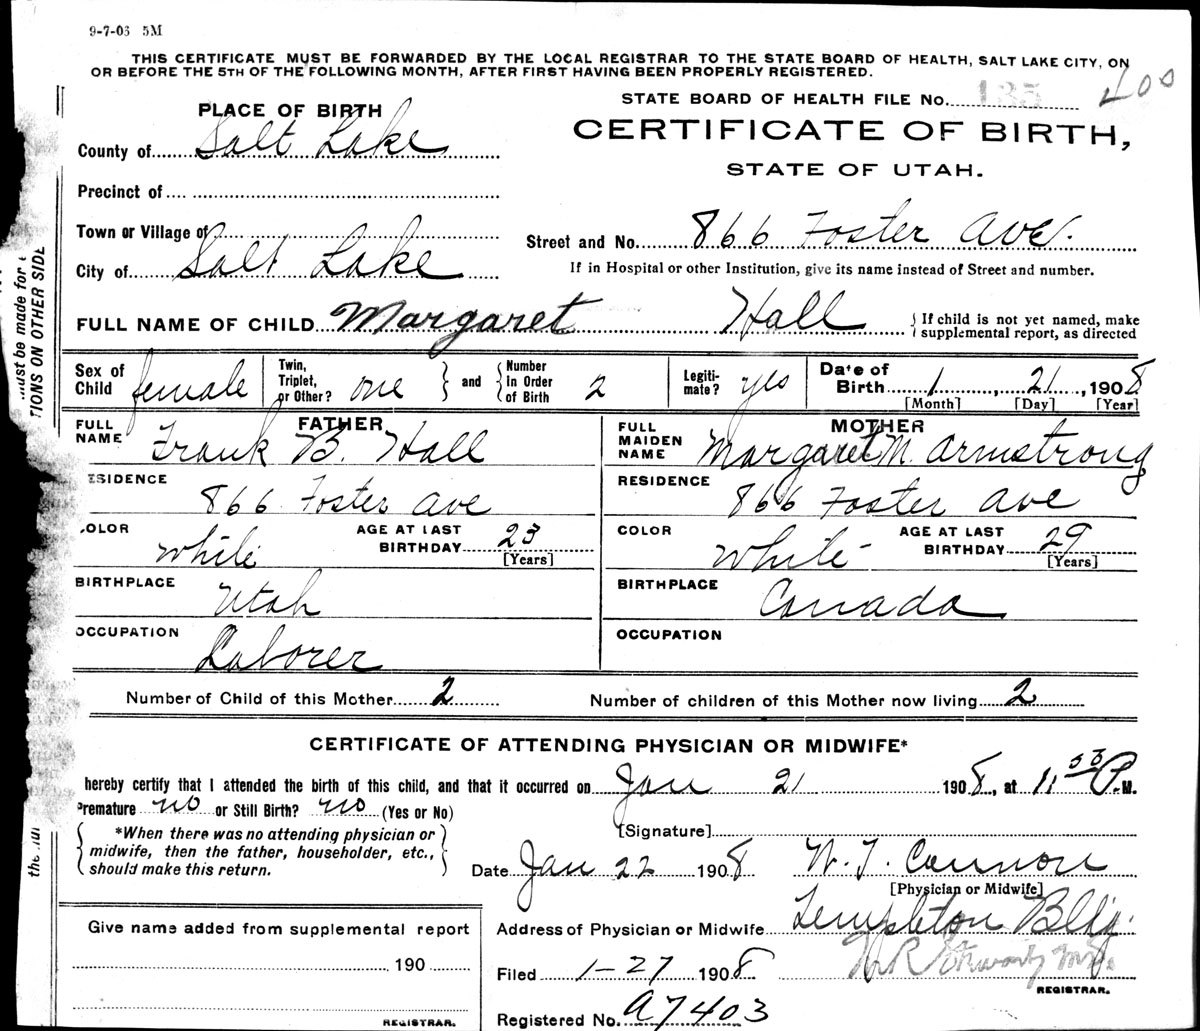 9-7-03 5M
THIS CERTIFICATE MUST BE FORWARDED BY THE LOCAL REGISTRAR TO THE STATE BOARD OF HEALTH, SALT LAKE CITY, ON
OR BEFORE THE 5TH OF THE FOLLOWING MONTH, AFTER FIRST HAVING BEEN PROPERLY REGISTERED.
STATE BOARD OF HEALTH FILE No. 135 400
PLACE OF BIRTH
CERTIFICATE OF BIRTH,
STATE OF UTAH.
County of Salt Lake
Precinct of
Town or Village of
Street and No. 866 Foster Ave.
City of Salt Lake
If in Hospital or other Institution, give its name instead of Street and number.
FULL NAME OF CHILD Margaret Hall { If child is not yet named, make
supplemental report, as directed
must be made for
TIONS ON OTHER SIDE
Sex of Child female
Twin, Triplet, or Other? one } and { Number In Order of Birth 2
Legiti-mate? yes
Date of Birth 1, 21, 1908
[Month] [Day] [Year]
FATHER
FULL NAME Frank B. Hall
RESIDENCE 866 Foster Ave
COLOR White AGE AT LAST BIRTHDAY 23 [Years]
BIRTHPLACE Utah
OCCUPATION Laborer
MOTHER
FULL MAIDEN NAME Margaret M. Armstrong
RESIDENCE 866 Foster Ave
COLOR White AGE AT LAST BIRTHDAY 29 [Years]
BIRTHPLACE Canada
OCCUPATION
Number of Child of this Mother 2 Number of children of this Mother now living 2
CERTIFICATE OF ATTENDING PHYSICIAN OR MIDWIFE*
hereby certify that I attended the birth of this child, and that it occurred on Jan 21 1908, at 11:53 P.M.
Premature no or Still Birth? no (Yes or No)
{ *When there was no attending physician or
midwife, then the father, householder, etc.,
should make this return. }
[Signature]
Date Jan 22 1908 W. T. Cannon
[Physician or Midwife]
Give name added from supplemental report
190
REGISTRAR.
Address of Physician or Midwife Templeton Bldg.
Filed 1-27 1908
REGISTRAR.
Registered No. A7403